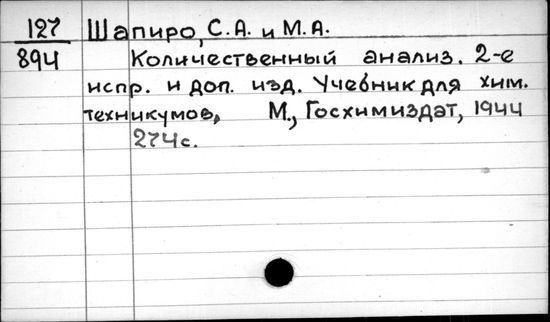 127 Шапиро, С.А. и М.А.
894 Количественный анализ. 2-е
испр. и доп. изд. Учебник для хим.
техникумов, М., Госхимиздат, 1944
274с.